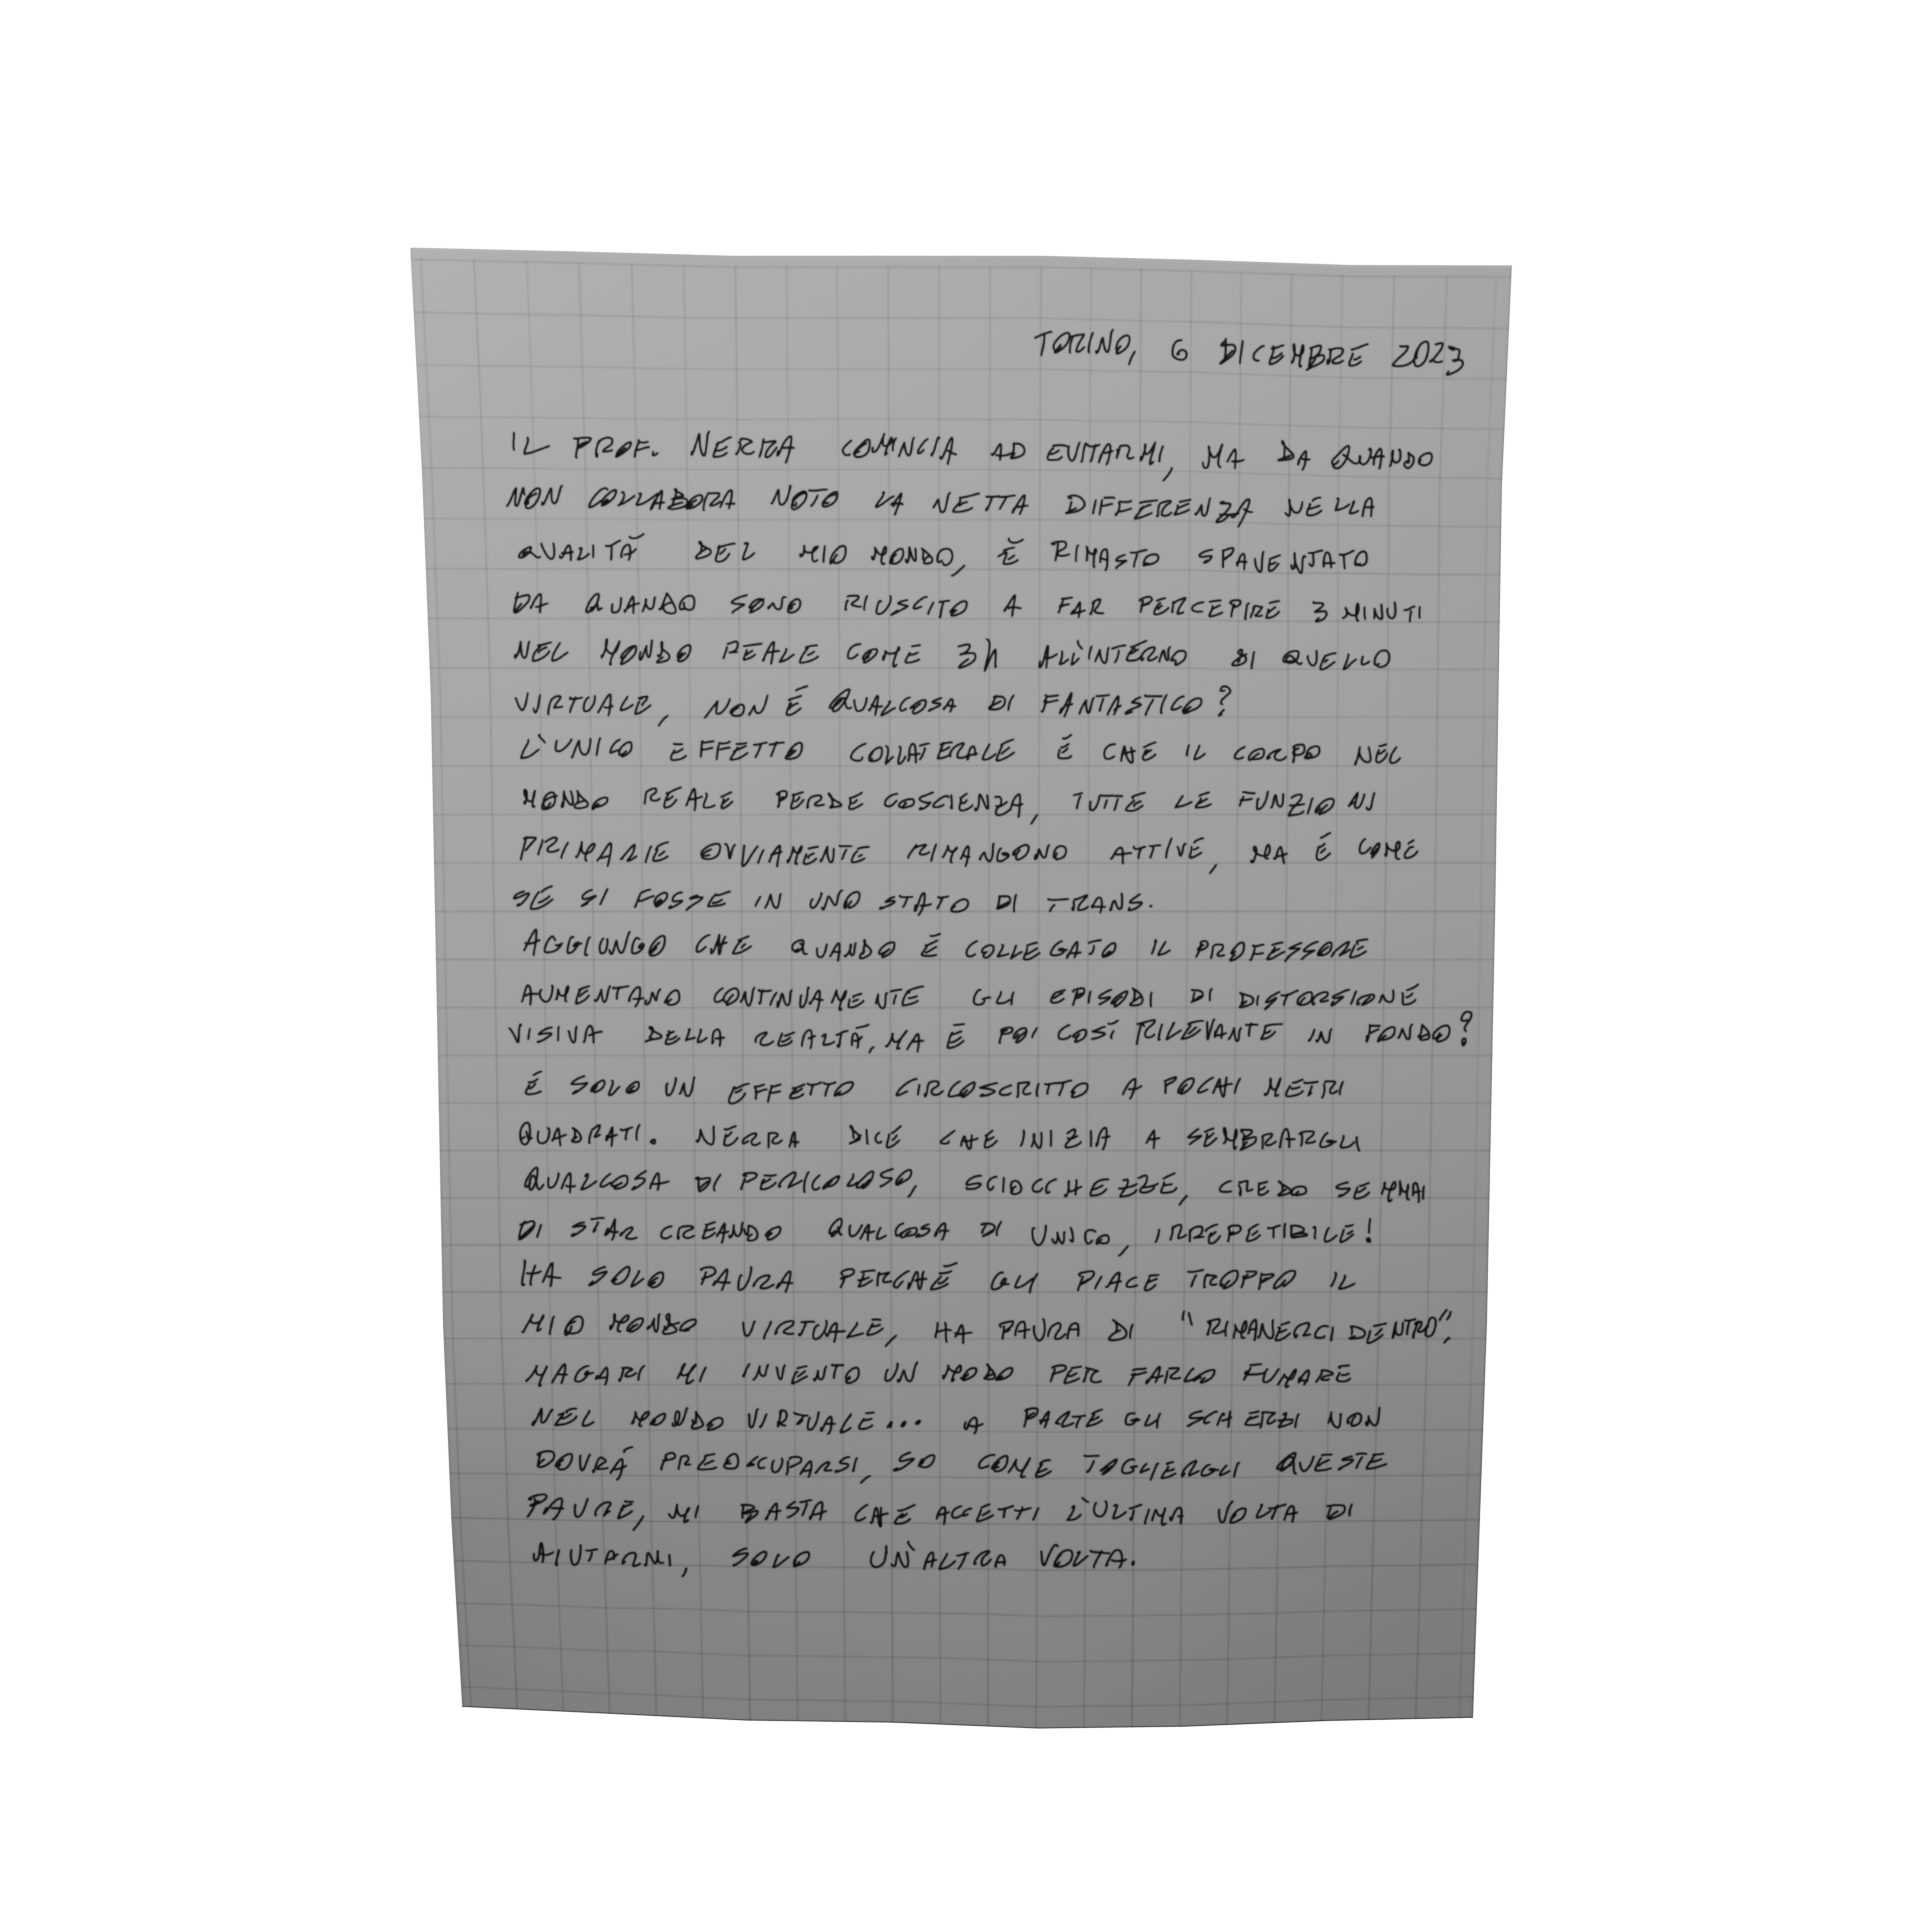 TORINO, 6 DICEMBRE 2023
IL PROF. NERRA COMINCIA AD EVITARMI, MA DA QUANDO
NON COLLABORA NOTO LA NETTA DIFFERENZA NELLA
QUALITÀ DEL MIO MONDO, È RIMASTO SPAVENTATO
DA QUANDO SONO RIUSCITO A FAR PERCEPIRE 3 MINUTI
NEL MONDO REALE COME 3h ALL'INTERNO DI QUELLO
VIRTUALE, NON É QUALCOSA DI FANTASTICO?
L'UNICO EFFETTO COLLATERALE É CHE IL CORPO NEL
MONDO REALE PERDE COSCIENZA, TUTTE LE FUNZIONI
PRIMARIE OVVIAMENTE RIMANGONO ATTIVE, MA É COME
SE SI FOSSE IN UNO STATO DI TRANS.
AGGIUNGO CHE QUANDO É COLLEGATO IL PROFESSORE
AUMENTANO CONTINUAMENTE GLI EPISODI DI DISTORSIONE
VISIVA DELLA REALTÁ, MA É POI COSÍ RILEVANTE IN FONDO?
É SOLO UN EFFETTO CIRCOSCRITTO A POCHI METRI
QUADRATI. NERRA DICE CHE INIZIA A SEMBRARGLI
QUALCOSA DI PERICOLOSO, SCIOCCHEZZE, CREDO SEMMAI
DI STAR CREANDO QUALCOSA DI UNICO, IRREPETIBILE!
HA SOLO PAURA PERCHÉ GLI PIACE TROPPO IL
MIO MONDO VIRTUALE, HA PAURA DI "RIMANERCI DENTRO",
MAGARI MI INVENTO UN MODO PER FARLO FUMARE
NEL MONDO VIRTUALE... A PARTE GLI SCHERZI NON
DOVRÁ PREOCCUPARSI, SO COME TOGLIERGLI QUESTE
PAURE, MI BASTA CHE ACCETTI L'ULTIMA VOLTA DI
AIUTARMI, SOLO UN'ALTRA VOLTA.